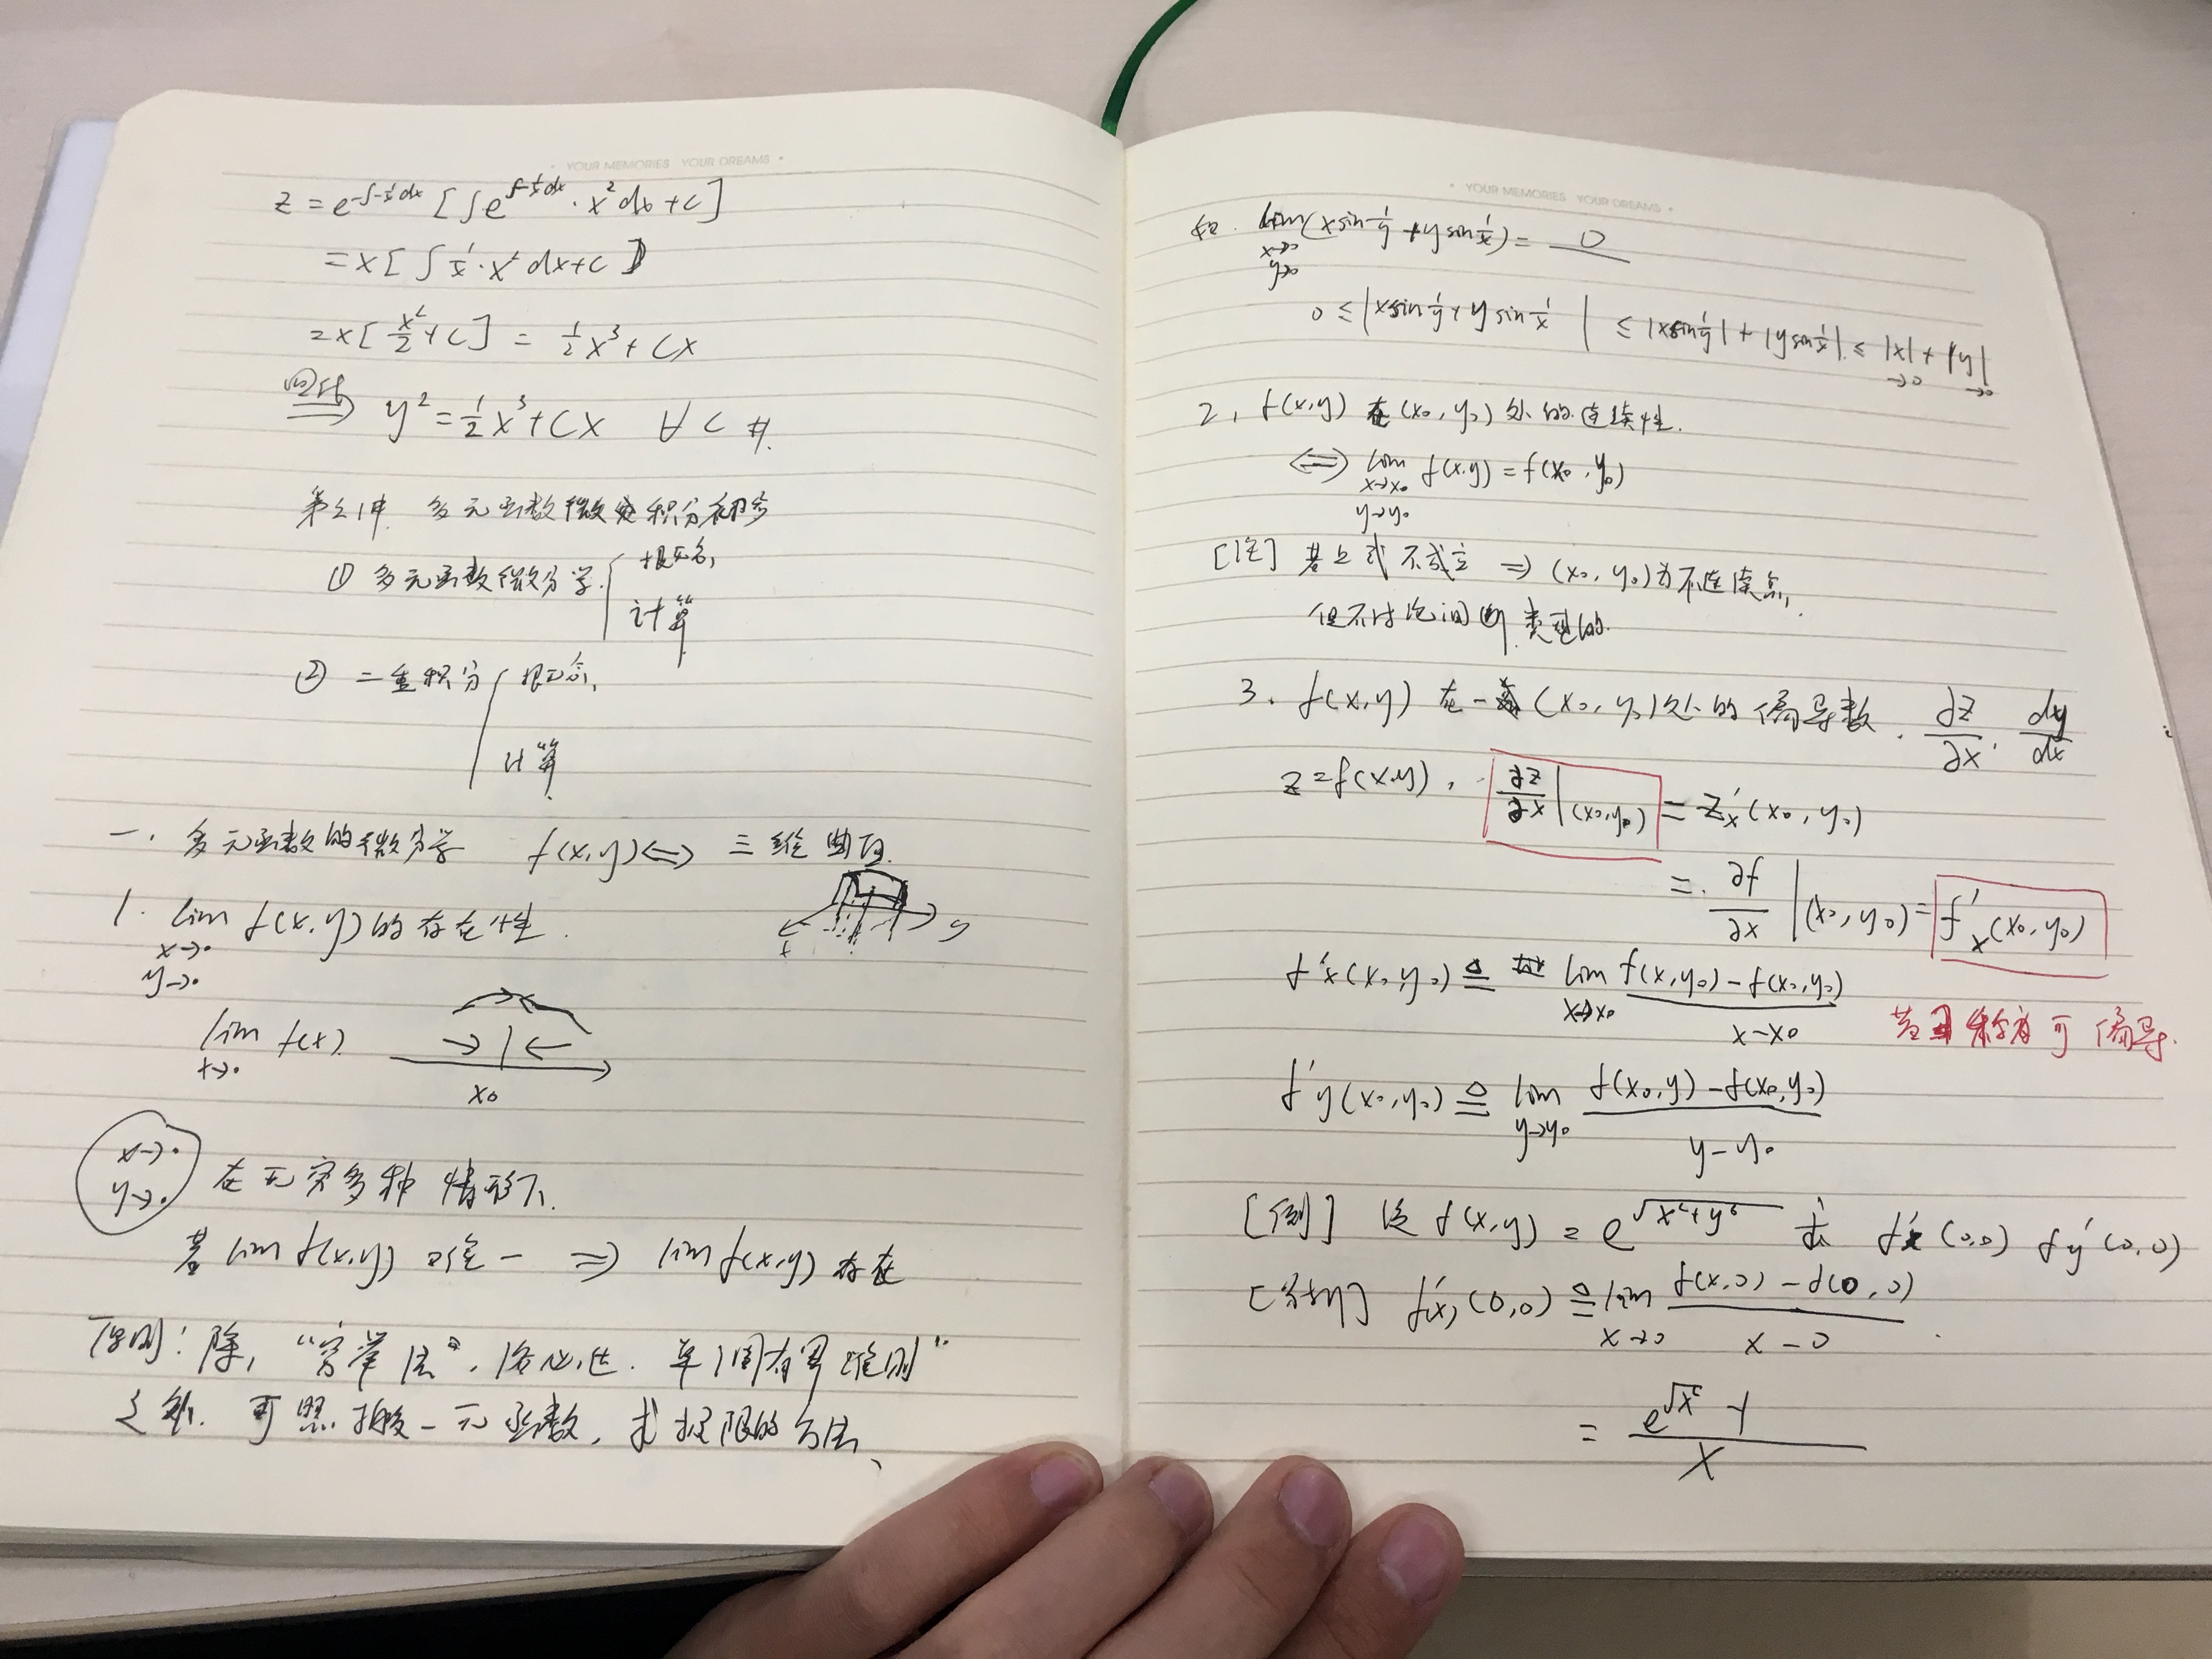 • YOUR MEMORIES YOUR DREAMS •
z = e^{-∫-1/x dx} [∫e^{∫-1/x dx} · x² dx + C]
= x [∫ 1/x · x² dx + C]
= x [x²/2 + C] = 1/2 x³ + Cx
⟹ y² = 1/2 x³ + Cx ∀ C #.
多元函数微积分初步
① 多元函数微分学 { 概念,
计算
② 二重积分 { 概念,
计算
一. 多元函数的微分学 f(x,y) ⟺ 三维曲面.
1. lim f(x,y) 的存在性.
x→·
y→·
x y
lim f(x)
x→·
x₀
x→·
y→· 在无穷多种情形下.
若 lim f(x,y) 唯一 ⟹ lim f(x,y) 存在
原则: 除, "穷举法", 洛必达. 单调有界准则"
之外. 可照搬一元函数, 求极限的方法、
• YOUR MEMORIES YOUR DREAMS •
如. lim (x sin 1/y + y sin 1/x) = 0
x→0
y→0
0 ≤ |x sin 1/y + y sin 1/x| ≤ |x sin 1/y| + |y sin 1/x| ≤ |x| + |y|
→0 →0
2, f(x,y) 在 (x₀, y₀) 处的连续性.
⟺ lim f(x,y) = f(x₀, y₀)
x→x₀
y→y₀
[注] 若上式不成立 ⟹ (x₀, y₀) 为不连续点,
但不讨论间断类型的.
3. f(x,y) 在一点 (x₀, y₀) 处的偏导数. ∂z/∂x, dy/dx
z = f(x,y), ∂z/∂x |(x₀,y₀) = z'x (x₀, y₀)
= ∂f/∂x |(x₀, y₀) = f'x (x₀, y₀)
f'x (x₀, y₀) ≜ lim f(x, y₀) - f(x₀, y₀)
x→x₀ x - x₀
可偏导.
f'y (x₀, y₀) ≜ lim f(x₀, y) - f(x₀, y₀)
y→y₀ y - y₀
[例] 设 f(x,y) = e^{√(x²+y⁶)} 求 f'x (0,0) f'y (0,0)
[分析] f'x (0,0) ≜ lim f(x,0) - f(0,0)
x→0 x - 0
= e^{√x²} - 1
x